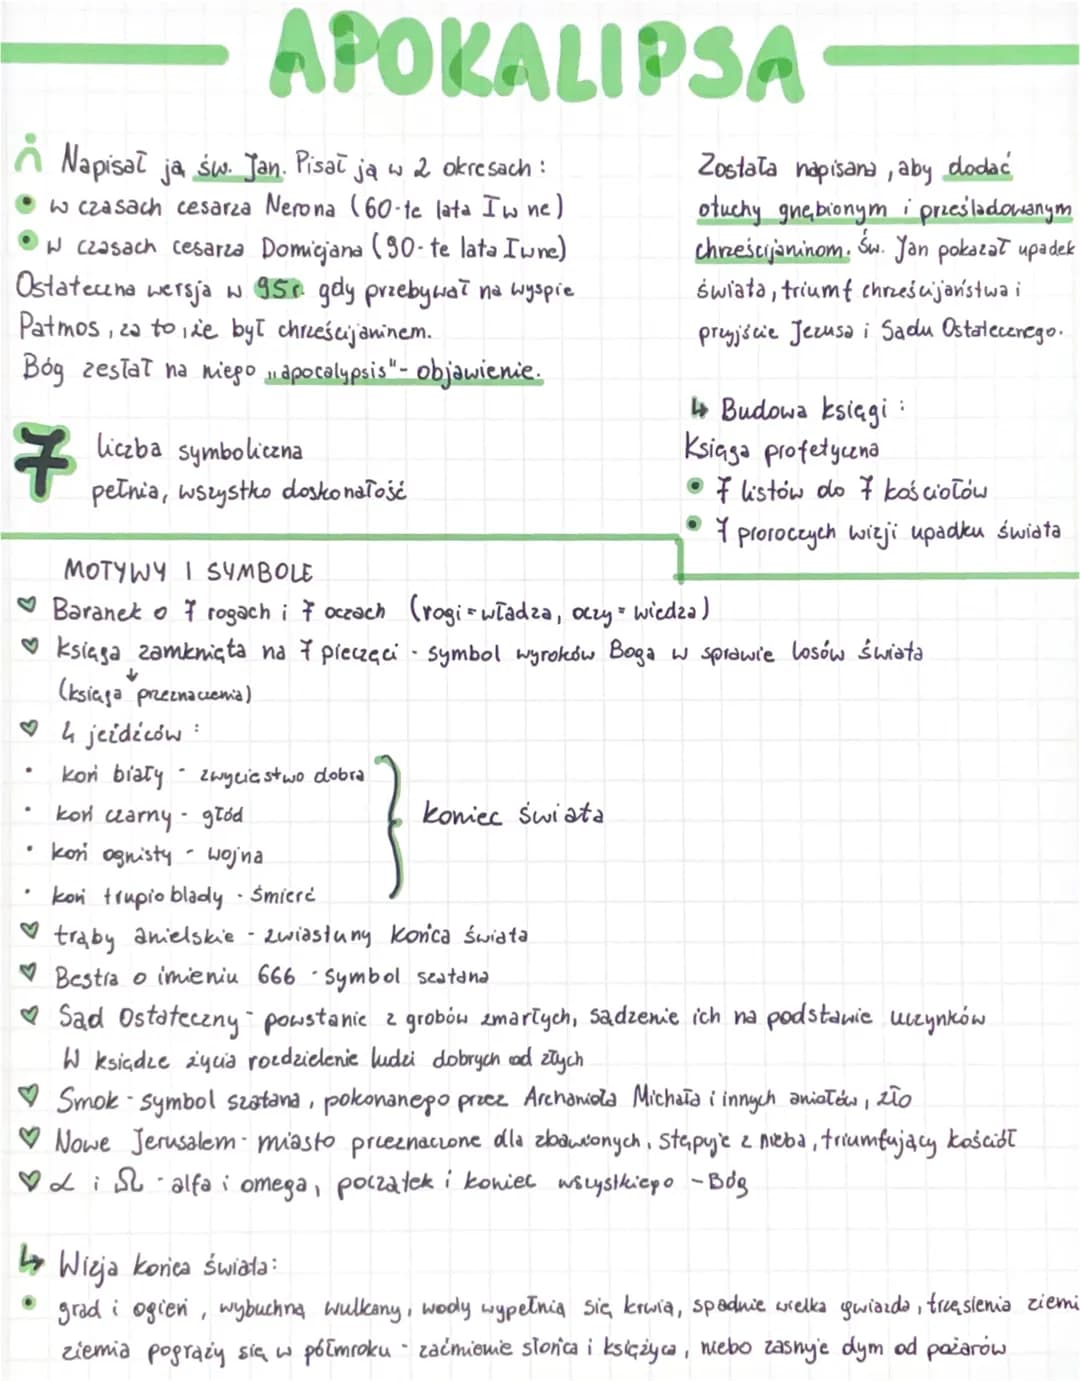 APOKALIPSA
Napisał ją św. Jan. Pisał ją w 2 okresach:
w czasach cesarza Nerona (60-te lata I w ne)
w czasach cesarza Domicjana (90-te lata I w ne)
Ostateczna wersja w 95r. gdy przebywał na wyspie
Patmos, za to, że był chrześcijaninem.
Bóg zesłał na niego „apocalypsis"- objawienie.
7 liczba symboliczna
pełnia, wszystko doskonałość
Została napisana, aby dodać
otuchy gnębionym i prześladowanym
chrześcijaninom. Św. Jan pokazał upadek
świata, triumf chrześcijaństwa i
przyjście Jezusa i Sądu Ostatecznego.
↳ Budowa księgi:
Księga profetyczna
7 listów do 7 kościołów
7 proroczych wizji upadku świata
MOTYWY I SYMBOLE
Baranek o 7 rogach i 7 oczach (rogi = władza, oczy = wiedza)
księga zamknięta na 7 pieczęci - symbol wyroków Boga w sprawie losów świata
↓
(księga przeznaczenia)
4 jeźdźców:
koń biały - zwycięstwo dobra
koń czarny - głód
koń ognisty - wojna
koń trupio blady - śmierć
koniec świata
trąby anielskie - zwiastuny końca świata
Bestia o imieniu 666 - symbol szatana
Sąd Ostateczny - powstanie z grobów zmarłych, sądzenie ich na podstawie uczynków
W księdze życia rozdzielenie ludzi dobrych od złych
Smok - symbol szatana, pokonanego przez Archanioła Michała i innych aniołów, zło
Nowe Jerusalem - miasto przeznaczone dla zbawionych, stępuje z nieba, triumfujący kościół
α i Ω - alfa i omega, początek i koniec wszystkiego - Bóg
↳ Wizja końca świata:
grad i ogień, wybuchną wulkany, wody wypełnią się krwią, spadnie wielka gwiazda, trzęsienia ziemi
ziemia pogrąży się w półmroku - zaćmienie słońca i księżyca, niebo zasnuje dym od pożarów